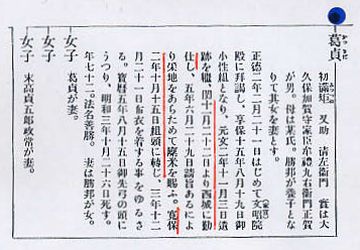 葛貞
初滿矩 又助 清左衞門 實は大
久保加賀守家臣牟禮九右衞門正賀
が男。母は某氏。勝邦が養子とな
りて其女を妻とす。
正德二年二月二十一日はじめて文昭院
殿に拜謁し、享保十五年八月十九日御
小性組となり、元文二年十二月三日遺
跡を繼、閏十一月二十二日より西城に勤
仕し、五年六月二十九日請旨あるによ
り采地をあらためて廩米を賜ふ。寬保
二年十月十五日組頭に轉じ、三年十二
月二十一日布衣を着する事をゆるさ
る。寶曆五年八月十六日御先弓の頭に
うつり、明和三年十月二十六日死す。
年七十二。法名善勝。 妻は勝邦が女。
女子
葛貞が妻。
女子
女子
末高貞五郎政常が妻。